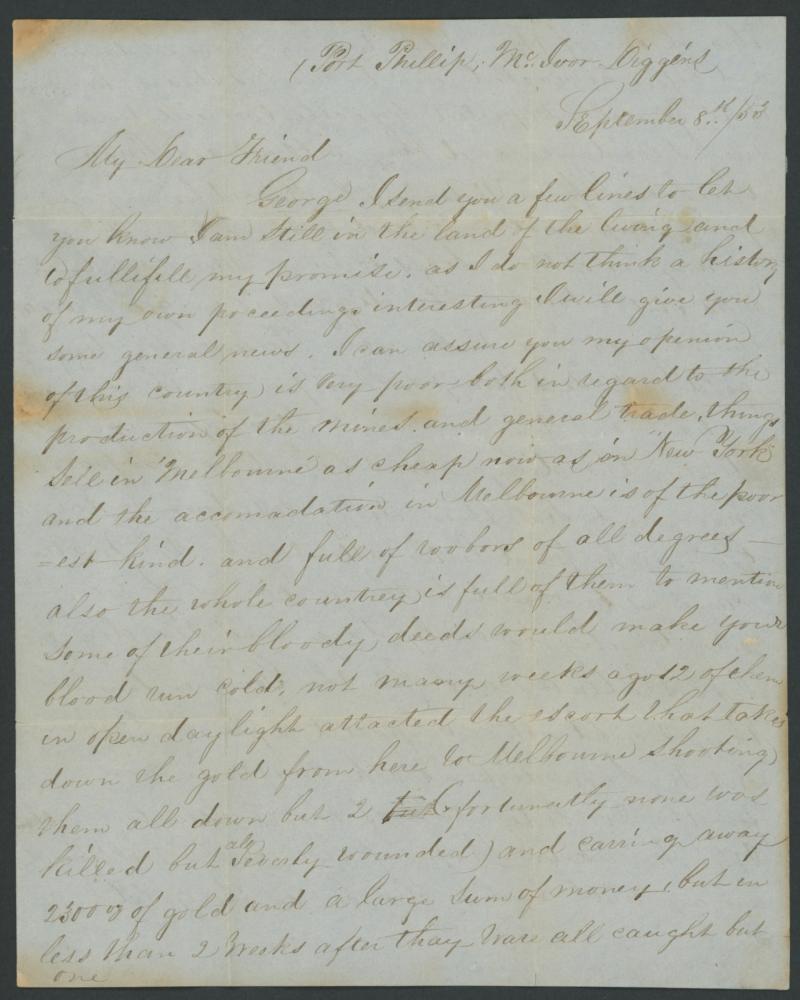 Port Phillip, Mc. Ivor Diggins
September 8th /53
My Dear Friend
George I send you a few lines to let
you know I am still in the land of the living and
to fullifill my promise. as I do not think a history
of my own poceedings interesting I will give you
some general news. I can assure you my openion
of this country is very poor both in regard to the
production of the mines. and general trade, things
sell in "Melbourne" as cheap now as in "New York"
and the accomadation in Melbourne is of the poor
=est kind. and full of roobors of all degrees —
also the whole countrey is full of them to mention
some of their bloody deeds would make your
blood run cold, not many weeks ago 12 of them
in open daylight attacted the escort that takes
down the gold from here to Melbourne shooting
them all down but 2 but (fortunatly none was
killed but all severly wounded) and carring away
2300 oz of gold and a large sum of money, but in
less than 2 weeks after thay ware all caught but
one